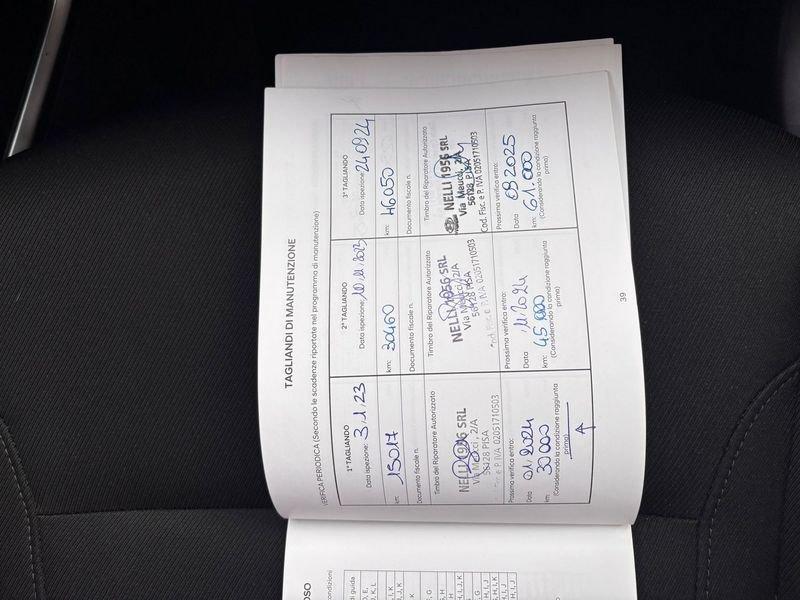 TAGLIANDI DI MANUTENZIONE
VERIFICA PERIODICA (Secondo le scadenze riportate nel programma di manutenzione)
1° TAGLIANDO
Data ispezione: 3.1.23
km: 15017
Documento fiscale n.
Timbro del Riparatore Autorizzato
NELLI 1956 SRL
Via Meucci, 2/A
56128 PISA
Cod. Fisc. e P. IVA 02051710503
Prossima verifica entro:
Data 01.2024
km 30.000
(Considerando la condizione raggiunta
prima)
2° TAGLIANDO
Data ispezione: 10.11.2023
km: 30460
Documento fiscale n.
Timbro del Riparatore Autorizzato
NELLI 1956 SRL
Via Meucci, 2/A
56128 PISA
Cod. Fisc. e P. IVA 02051710503
Prossima verifica entro:
Data 11/2024
km: 45.000
(Considerando la condizione raggiunta
prima)
3° TAGLIANDO
Data ispezione: 240924
km: 46050
Documento fiscale n.
Timbro del Riparatore Autorizzato
NELLI 1956 SRL
Via Meucci, 2/A
56128 PISA
Cod. Fisc. e P. IVA 02051710503
Prossima verifica entro:
Data 09.2025
km: 61.000
(Considerando la condizione raggiunta
prima)
39